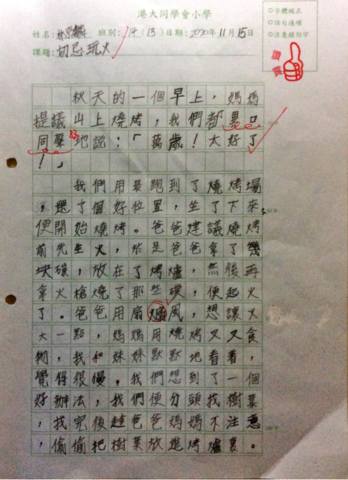 港大同學會小學
姓名: 班別: (13) 日期: 2020年11月15日
課題: 切忌玩火
◎字體端正
◎語句通順
◎注意錯別字
秋天的一個早上，媽媽
提議山上燒烤，我們都異口
同聲地說：「萬歲！太好了
！」
我們用最跑到了燒烤場
，選了個好位置，坐了下來，
便開始燒烤。爸爸建議燒烤
前先生火，於是爸爸拿了幾
塊碳，放在了烤爐，然後再
拿火槍燒了那些碳，便起火
了。爸爸用扇煽風，想讓火
大一點，媽媽用燒烤叉叉食
物，我和妹妹默默地看着，
覺得很慢，我們想到了一個
好辦法，我們便分頭找樹葉
，找完後趁爸爸媽媽不注意
，偷偷把樹葉放進烤爐裏。